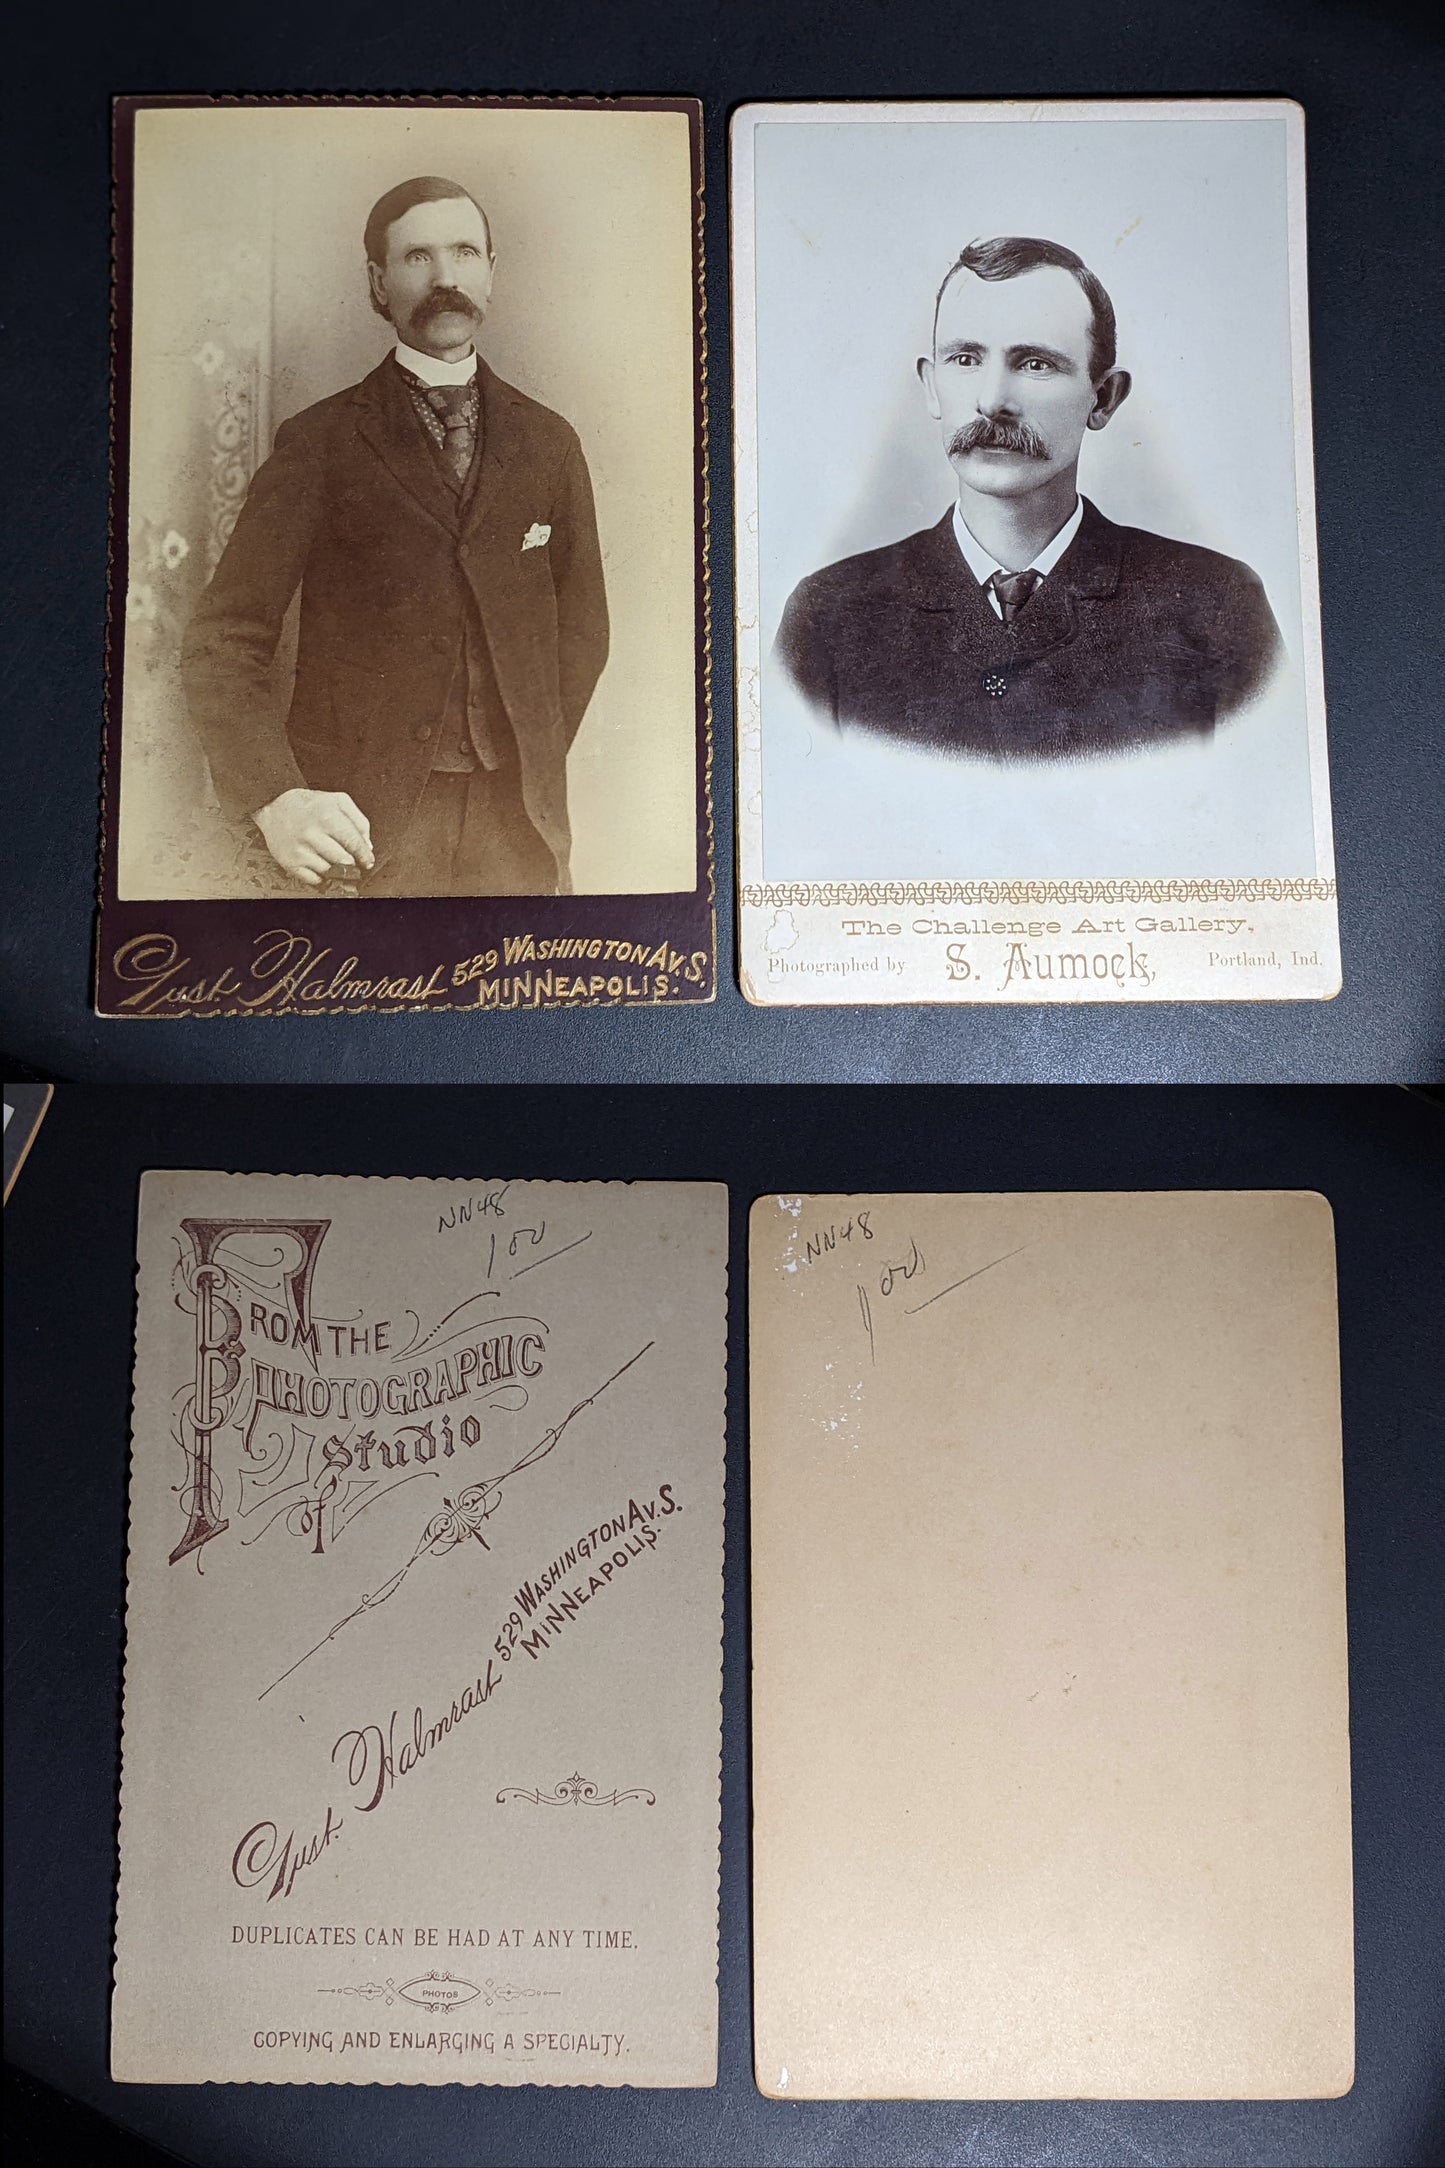 Gust. Halmrast 529 WASHINGTON AV. S.
MINNEAPOLIS.
The Challenge Art Gallery,
Photographed by S. Aumock, Portland, Ind.
NN48
100
FROM THE
PHOTOGRAPHIC
Studio
of
Gust. Halmrast 529 WASHINGTON AV. S.
MINNEAPOLIS.
DUPLICATES CAN BE HAD AT ANY TIME.
PHOTOS
COPYING AND ENLARGING A SPECIALTY.
NN48
100